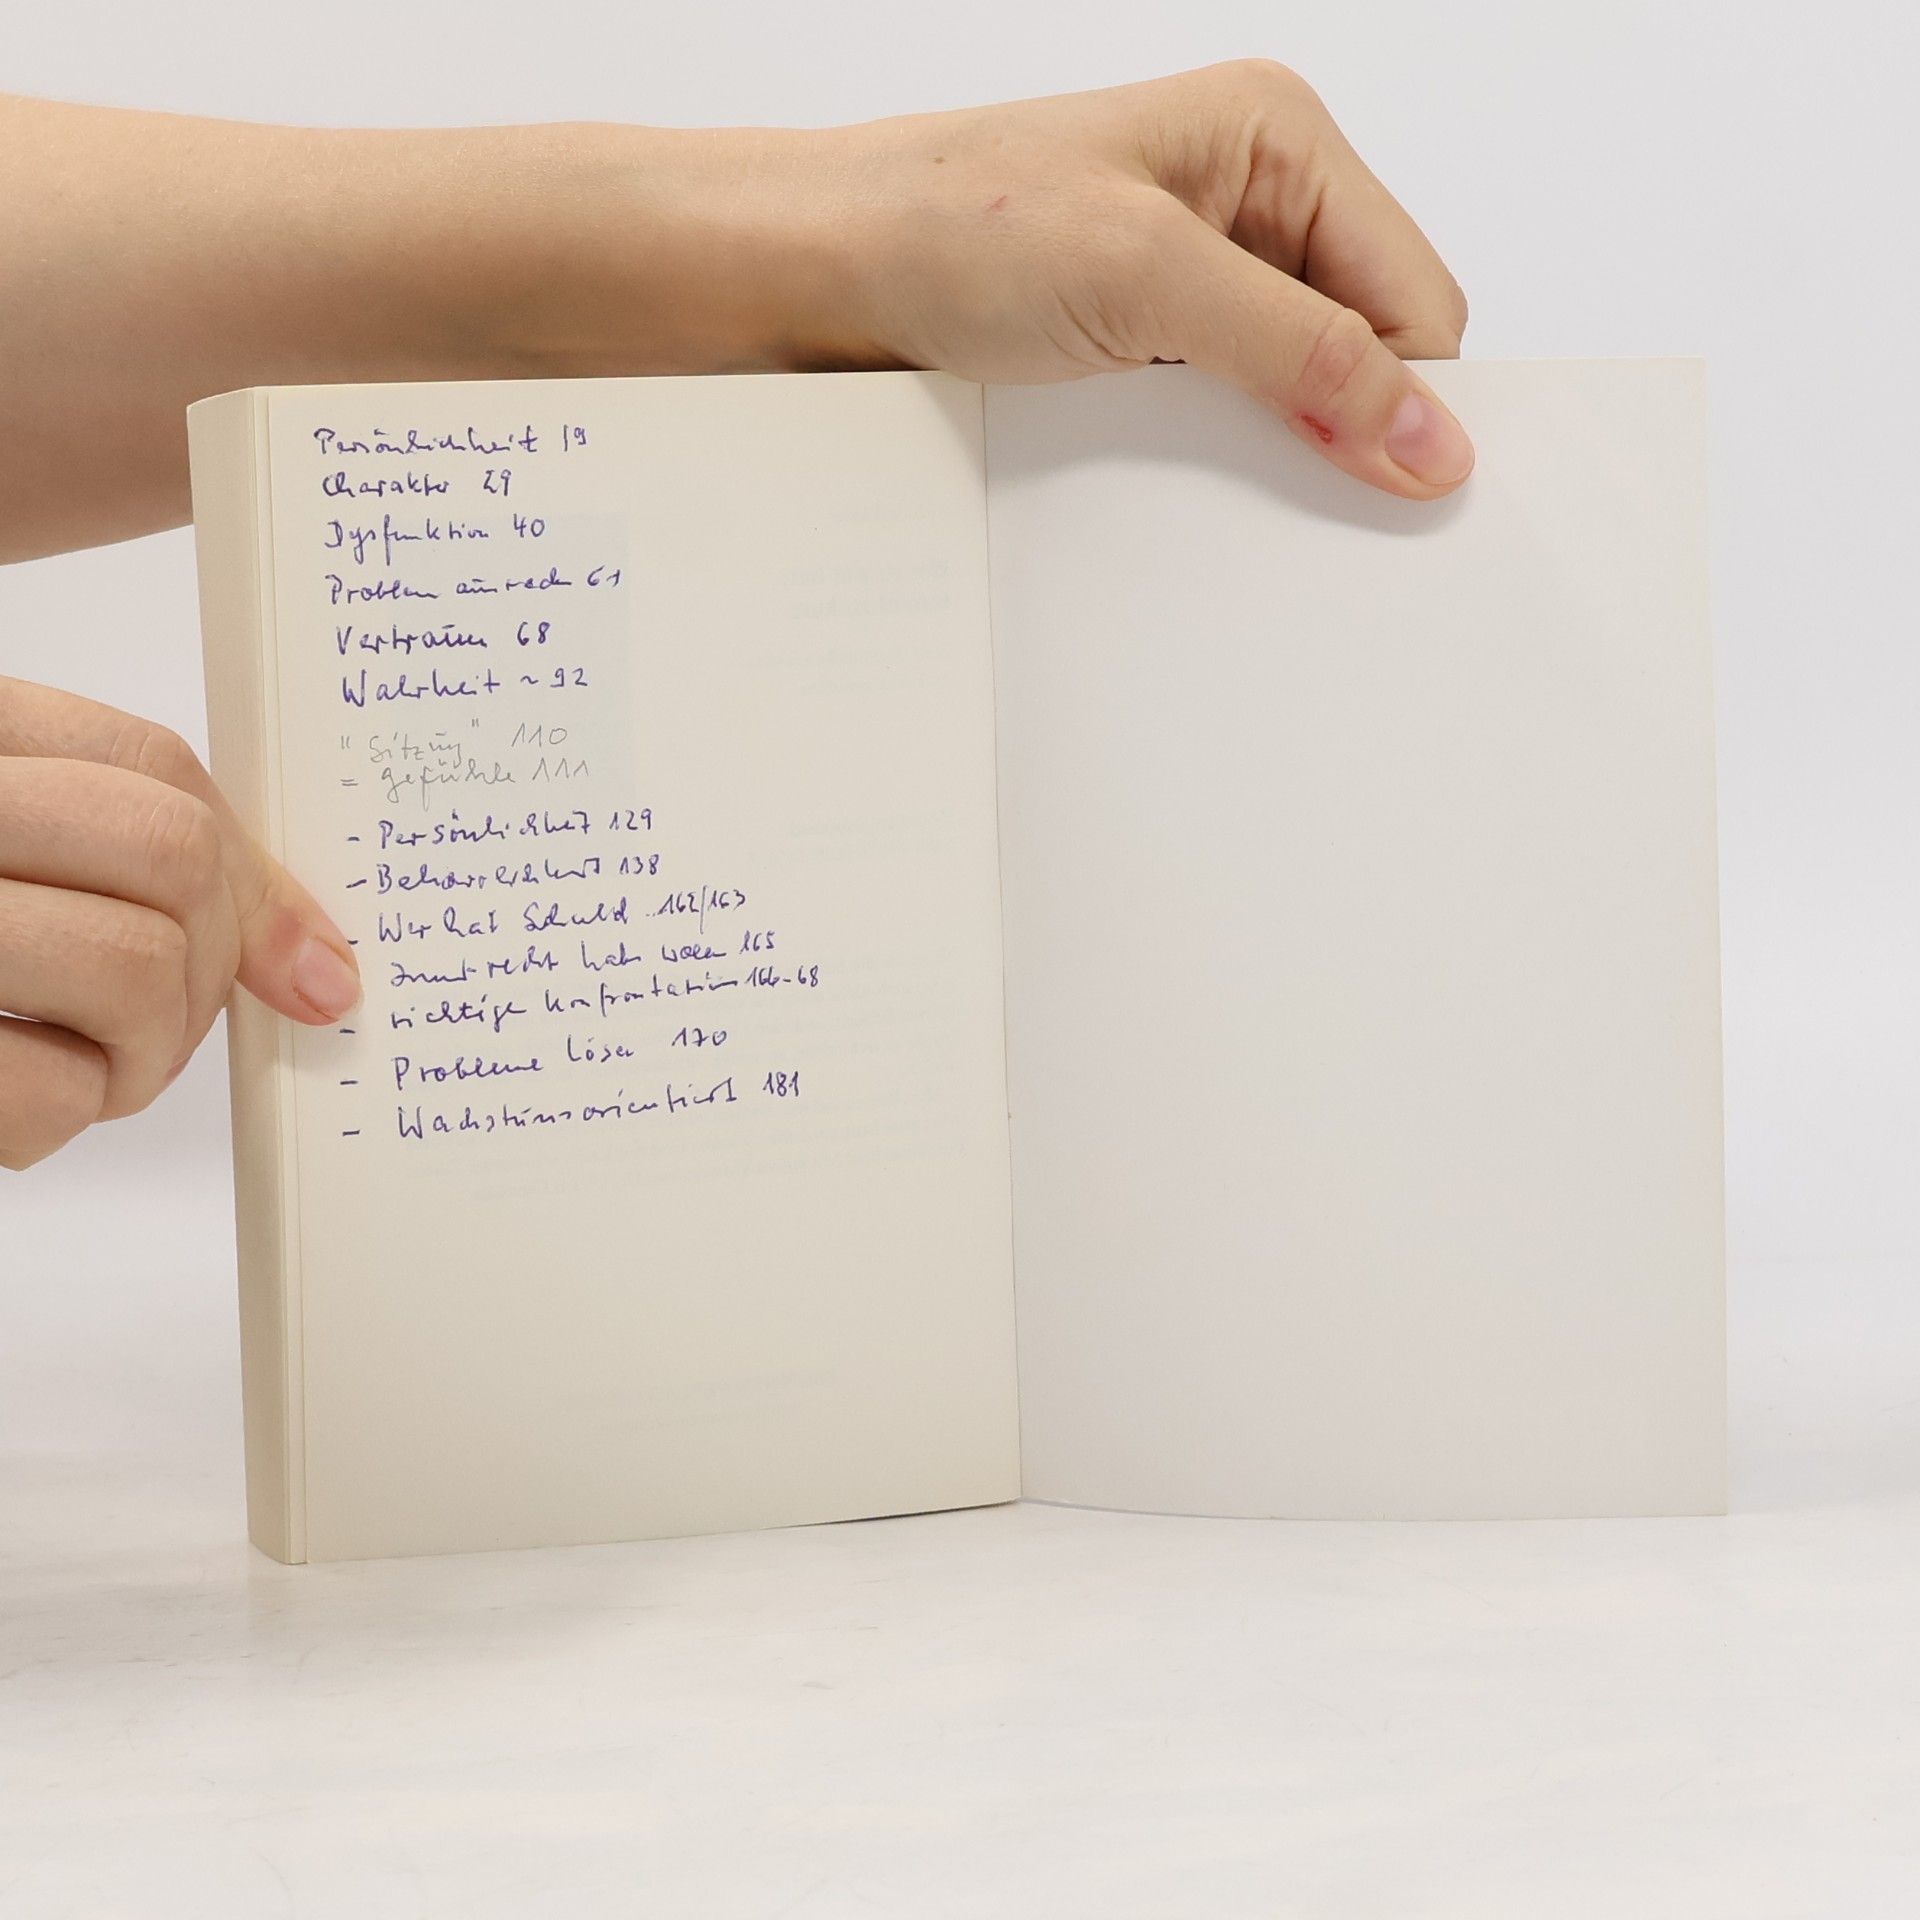 Persönlichkeit 19
Charakter 29
Dysfunktion 40
Problem ausreden 61
Vertrauen 68
Wahrheit ~ 92
"Sitzung" 110
= Gefühle 111
- Persönlichkeit 129
- Beharrlichkeit 138
- Wer hat Schuld .. 162/163
recht haben wollen 165
- richtige Konfrontation 166-68
- Probleme lösen 170
- Wachstumsorientiert 181